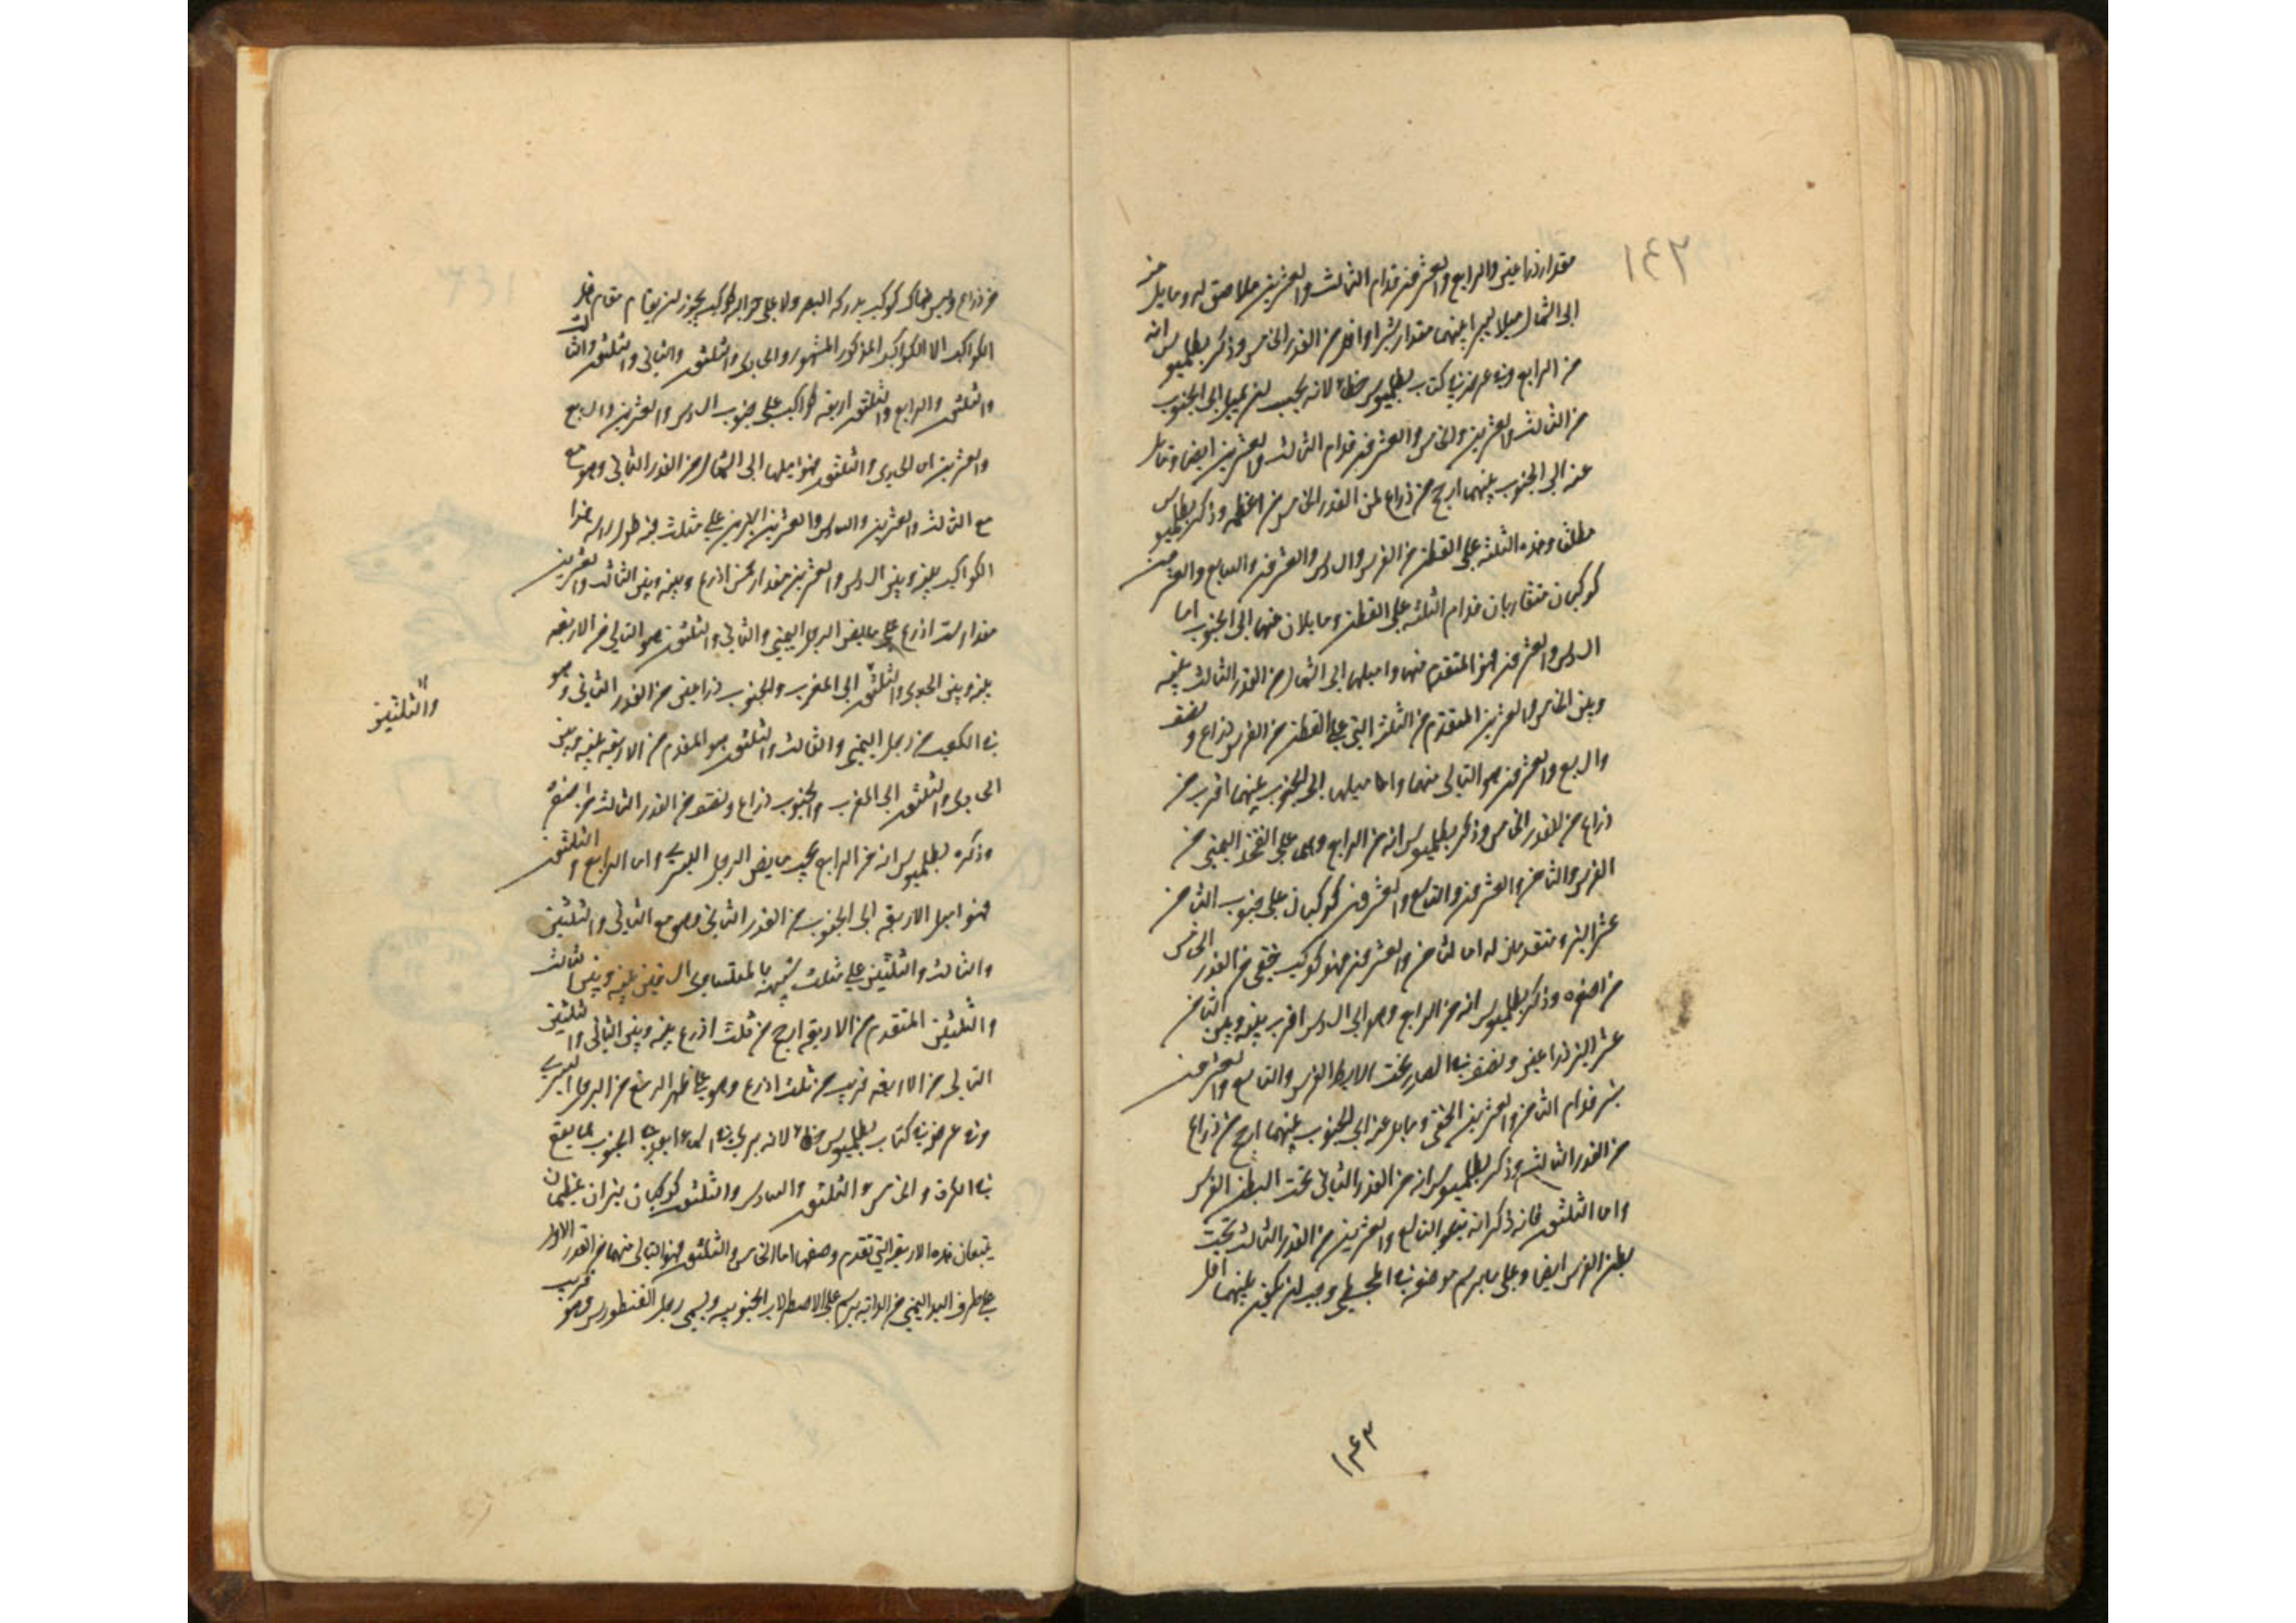 ١٤٢
مقدار ذراعين والرابع والعشرون قدام الثالث والعشرين ملاصق له ومايل عنه
الى الشمال ميلا يسيرا بينهما مقدار شبر او اقل من القدر الخامس وذكر بطلميوس انه
من الرابع وفى عرضه فى كتاب بطلميوس خطاء لانه يجب ان يميل الى الجنوب
من الثالث والعشرين والخامس والعشرون قدام الثالث والعشرين ايضا ومايل
عنه الى الجنوب بينهما ارجح من ذراع من القدر الخامس من اعظمه وذكر بطلميوس
مطلقا وهذه الثلثة على القطن من الفرس والسادس والعشرون والسابع والعشرون
كوكبان متقاربان قدام الثلثة على القطن ومايلان عنها الى الجنوب اما
السادس والعشرون فهو المتقدم منهما واميلهما الى الشمال من القدر الثالث بينه
وبين الخامس والعشرين المتقدم من الثلثة التى على القطن من الفرس ذراع ونصف
والسابع والعشرون هو التالى منهما واميلهما الى الجنوب بينهما اقرب من
ذراع من القدر الخامس وذكر بطلميوس انه من الرابع وهما على الفخذ اليمنى من
الفرس والثامن والعشرون والتاسع والعشرون كوكبان على جنوب الثامن
عشر النير متقدمان له اما الثامن والعشرون فهو كوكب خفى من القدر الخامس
من اصغره وذكر بطلميوس انه من الرابع وهو الى السادس اقرب بينه وبين الثامن
عشر النير ذراعين ونصف فى الصدر تحت الابط الفرس والتاسع والعشرون
نير قدام الثامن والعشرين الخفى ومايل عنه الى الجنوب بينهما ارجح من ذراع
من القدر الثالث وذكر بطلميوس انه من القدر الثانى تحت البطن الفرس
واما الثلثون فانه ذكر انه يتبع التاسع والعشرين من القدر الثالث تحت
بطن الفرس ايضا وعلى ما يرسم موضعه فى المجسطى وجب ان يكون بينهما اقل
١٤٣
من ذراع وليس هناك كوكب يدركه البصر ولا على حواله كوكب يجوز ان يقام مقام هذه
الكواكب الا الكواكب المذكور المشهور والحادى والثلثون والثانى والثلثون والثالث
والثلثون والرابع والثلثون اربعة كواكب على جنوب السادس والعشرين والسابع
والعشرين اما الحادى والثلثون فهو اميلها الى الشمال من القدر الثانى وهو مع
مع الثالث والعشرين والسادس والعشرين النيرين على مثلث فيه طول راسه هذا
الكوكب بينه وبين السادس والعشرين مقدار خمس اذرع وبينه وبين الثالث والعشرين
مقدار ست اذرع على مابض الرجل اليمنى والثانى والثلثون هو التالى من الاربعة
بينه وبين الحادى والثلثون الى المغرب والجنوب ذراعين من القدر الثانى وهو
والثلثين
فى الكعب من رجل اليمنى والثالث والثلثون هو المقدم من الاربعة بينه وبين
الحادى والثلثون الى المغرب والجنوب ذراع ونصف من القدر الثالث من اصغره
وذكره بطلميوس انه من الرابع تحت مابض الرجل اليسرى واما الرابع والثلثون
فهو اميل الاربعة الى الجنوب من القدر الثانى وهو مع الثانى والثلثين
والثالث والثلثين على مثلث شبيه بالمتساوى الساقين بينه وبين الثالث
والثلثين المتقدم من الاربعة ارجح من ثلث اذرع بينه وبين الثانى والثلثين
التالى من الاربعة قريب من ثلث اذرع وهو على ظهر الرسغ من الرجل اليسرى
وفى عرضه فى كتاب بطلميوس خطاء لانه يرى فى السماء ابعد فى الجنوب مما يقع
فى الكرة والخامس والثلثون والسادس والثلثون كوكبان نيران عظيمان
يتبعان هذه الاربعة التى تقدم وصفها اما الخامس والثلثون فهو التالى منهما من القدر الاول
على طرف اليد اليمنى من الدابة يرسم على الاصطرلاب الجنوبيه ويسمى رجل القنطورس وهو قريب